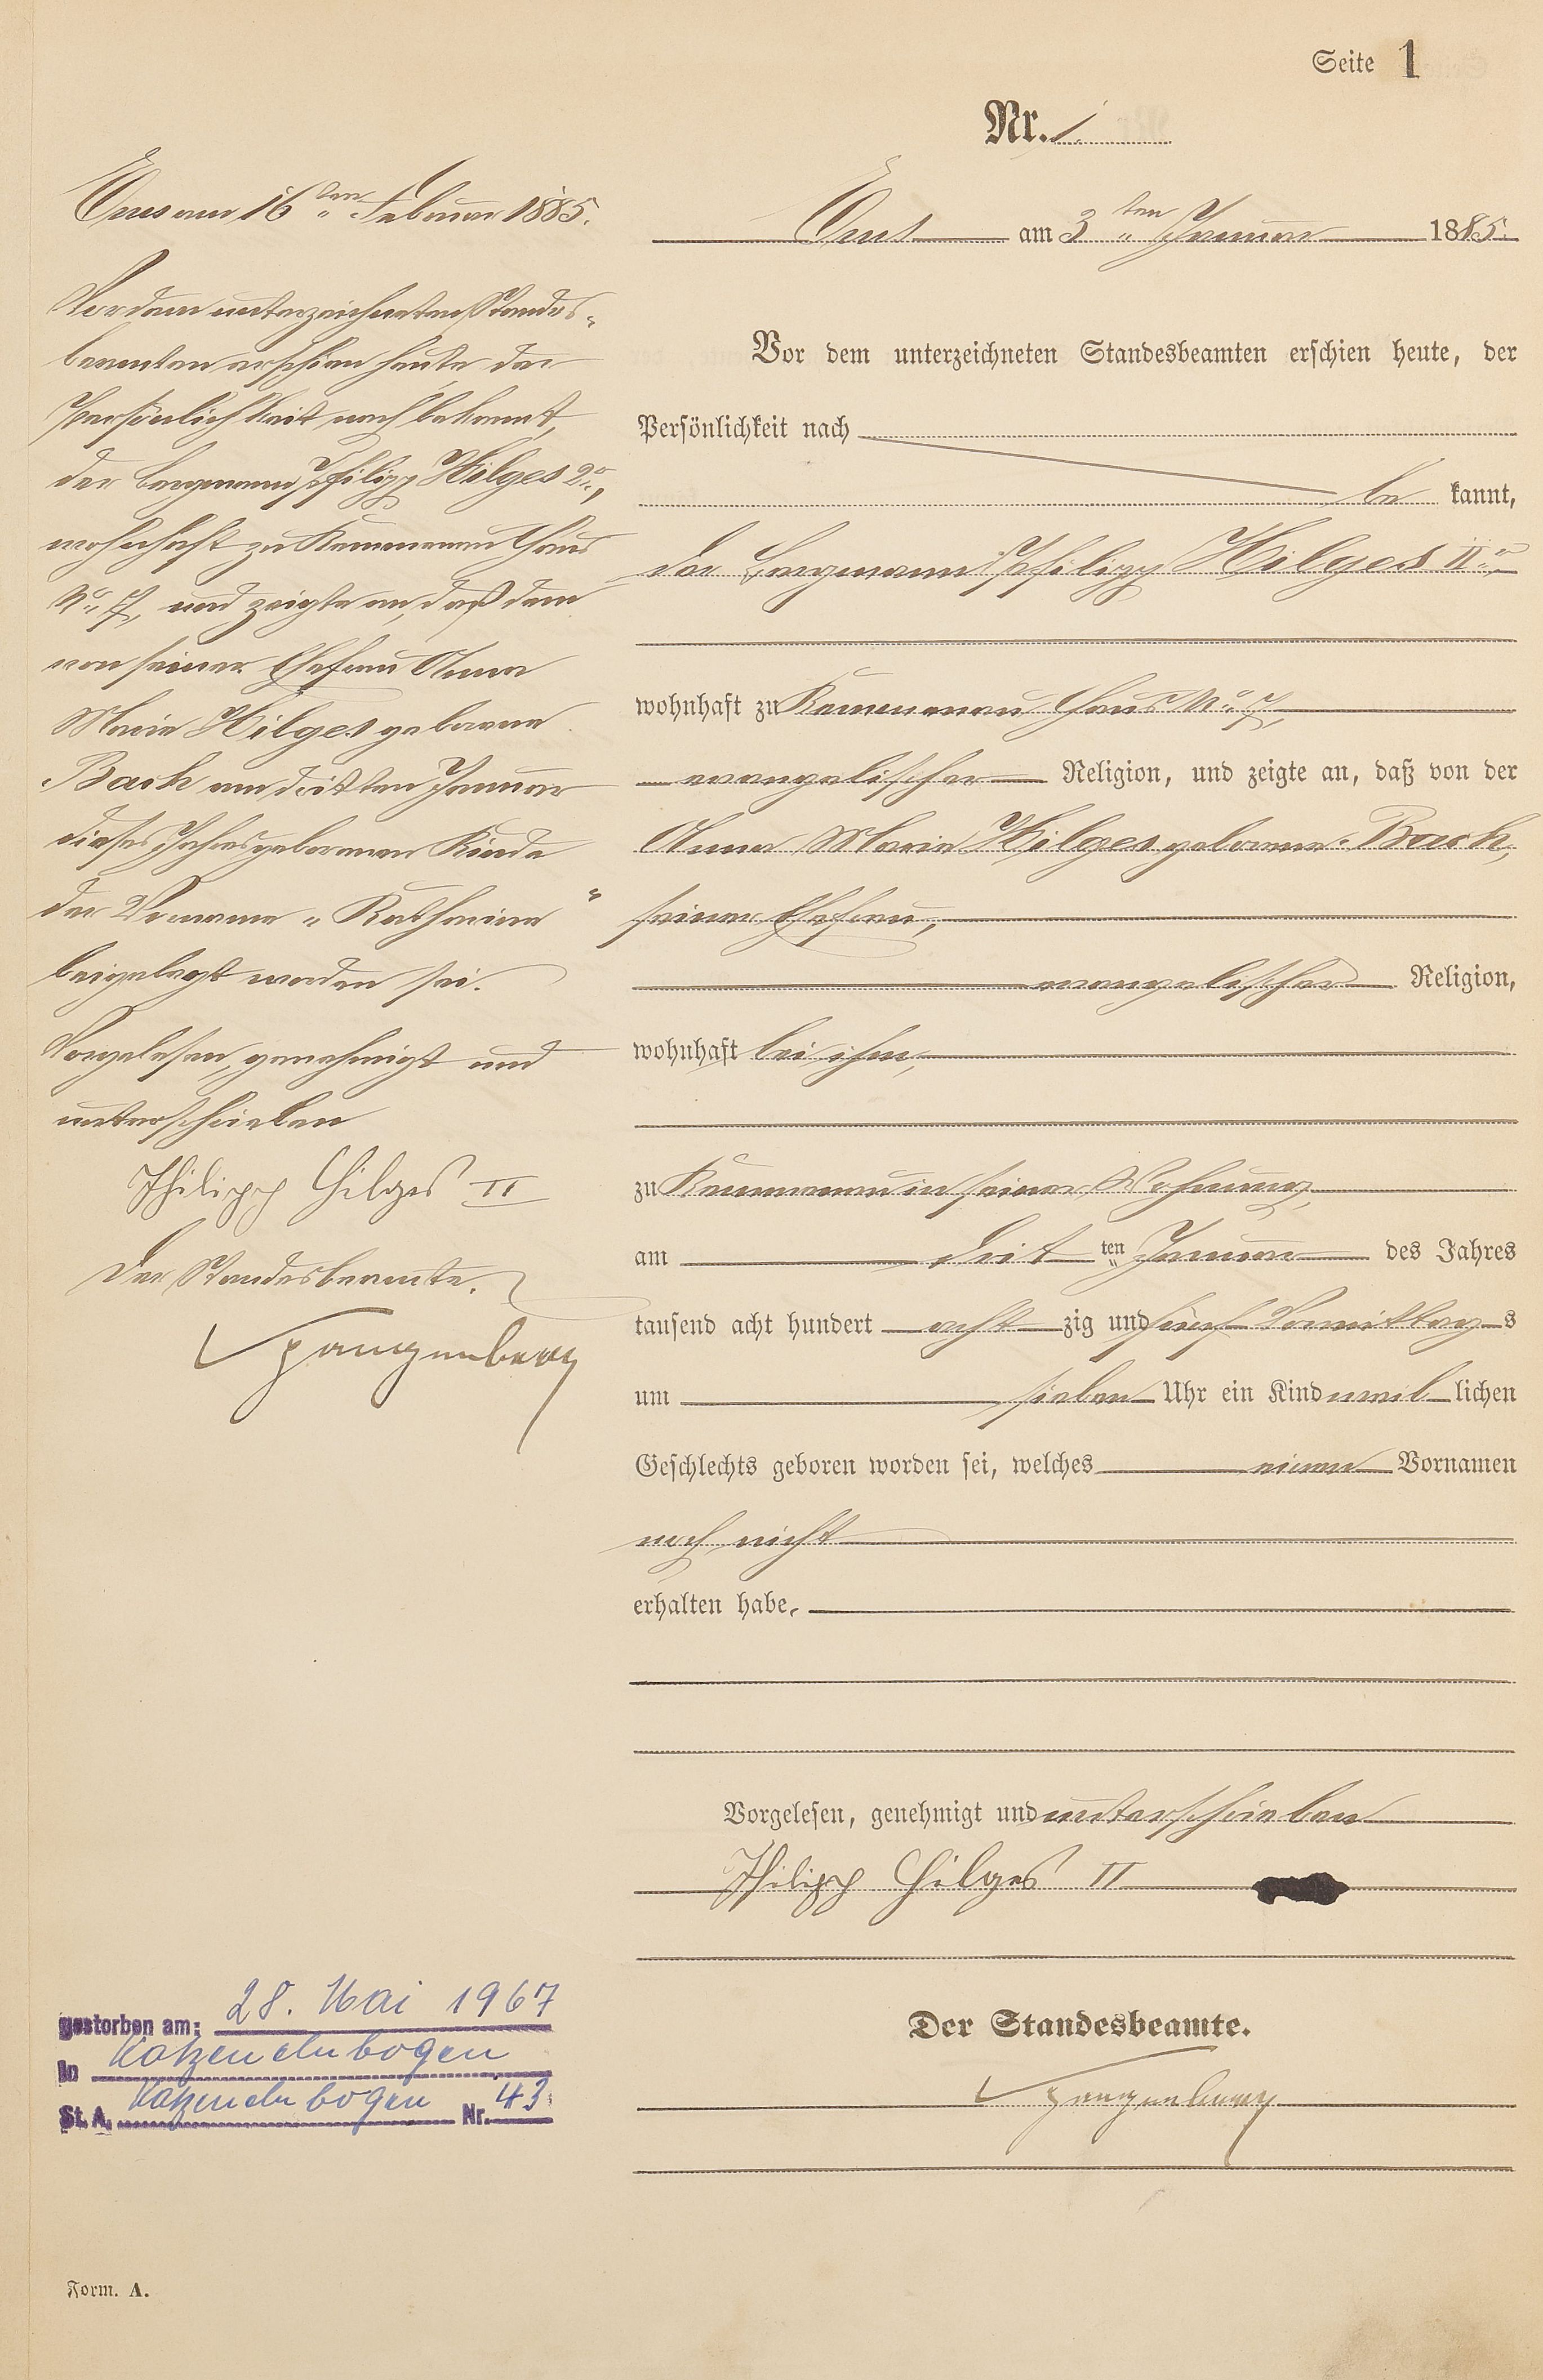 Seite 1
Nr. 1.
Ems am 3ten Januar 1885.
Vor dem unterzeichneten Standesbeamten erschien heute, der
Persönlichkeit nach
be kannt,
der Bergmann Philipp Hilges IIr
wohnhaft zu Kemmenau Haus No. 7,
evangelischer Religion, und zeigte an, daß von der
Anna Marie Hilges geborene Bach,
seiner Ehefrau,
evangelischer Religion,
wohnhaft bei ihm,
zu Kemmenau in seiner Wohnung,
am dritten Januar des Jahres
tausend acht hundert acht zig und fünf Vormittags
um sieben Uhr ein Kind weiblichen
Geschlechts geboren worden sei, welches einen Vornamen
noch nicht
erhalten habe.
Vorgelesen, genehmigt und unterschrieben
Philipp Hilges II
Der Standesbeamte.
Spangenberg
Ems am 16ten Februar 1885.
Vor dem unterzeichneten Standes-
beamten erschien heute, der
Persönlichkeit nach bekannt,
der Bergmann Philipp Hilges 2r,
wohnhaft zu Kemmenau Haus
No. 7, und zeigte an, daß dem
von seiner Ehefrau Anna
Marie Hilges geborene
Bach am dritten Januar
dieses Jahres geborenen Kinde
der Vorname „Katharina“
beigelegt worden sei.
Vorgelesen, genehmigt und
unterschrieben
Philipp Hilges II
Der Standesbeamte.
Spangenberg
gestorben am: 28. Mai 1967
in Katzenelnbogen
St. A. Katzenelnbogen Nr. 43
Form. A.